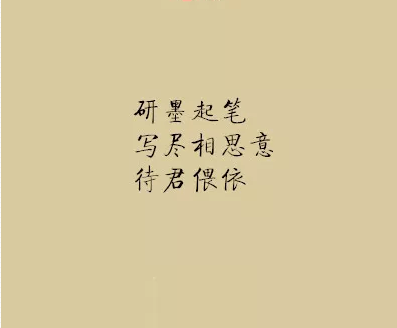 研墨起笔
写尽相思意
待君偎依